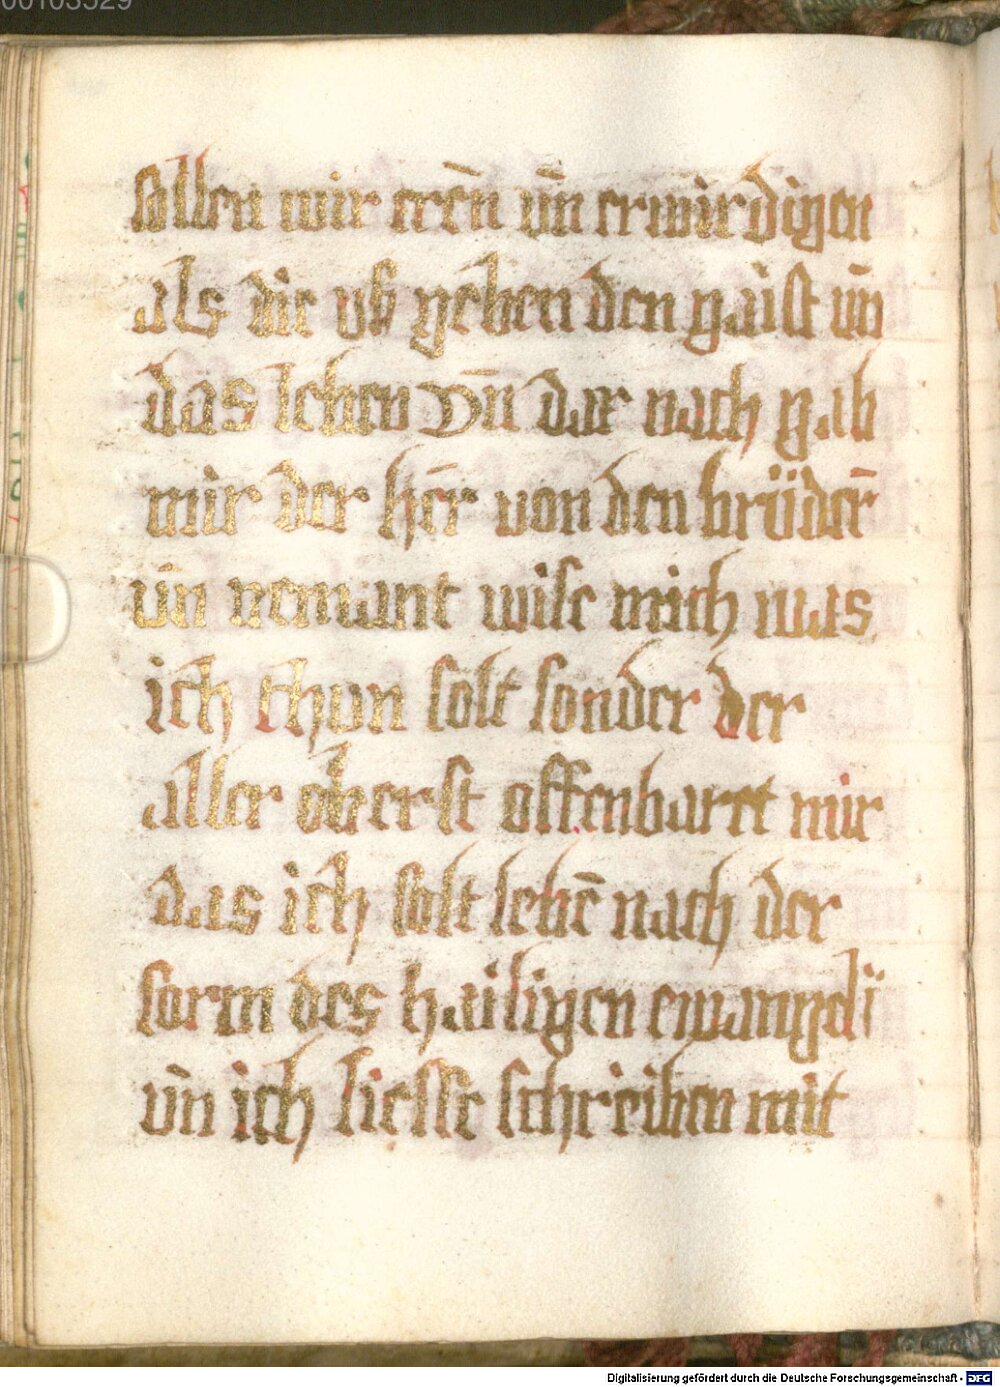 00103529
sollen wir eren̄ vn̄ erwirdigen
als die vß geben den gaist vn̄
das leben Vn̄ dar nach gab
mir der her̄ von den brüder̄
vn̄ nemant wise mich was
ich thun solt sonder der
aller oberst offenbaret mir
das ich solt lebē nach der
form des hailigen ewangeli
vn̄ ich liesse schreiben mit
Digitalisierung gefördert durch die Deutsche Forschungsgemeinschaft - DFG